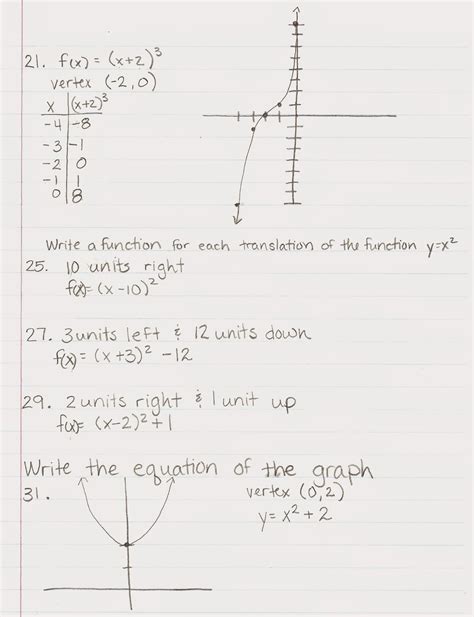 21. f(x) = (x+2)³
vertex (-2,0)
x (x+2)³
-4 -8
-3 -1
-2 0
-1 1
0 8
Write a function for each translation of the function y=x²
25. 10 units right
f(x)= (x-10)²
27. 3 units left & 12 units down
f(x) = (x+3)² -12
29. 2 units right & 1 unit up
f(x)= (x-2)²+1
Write the equation of the graph
31. vertex (0,2)
y= x²+2